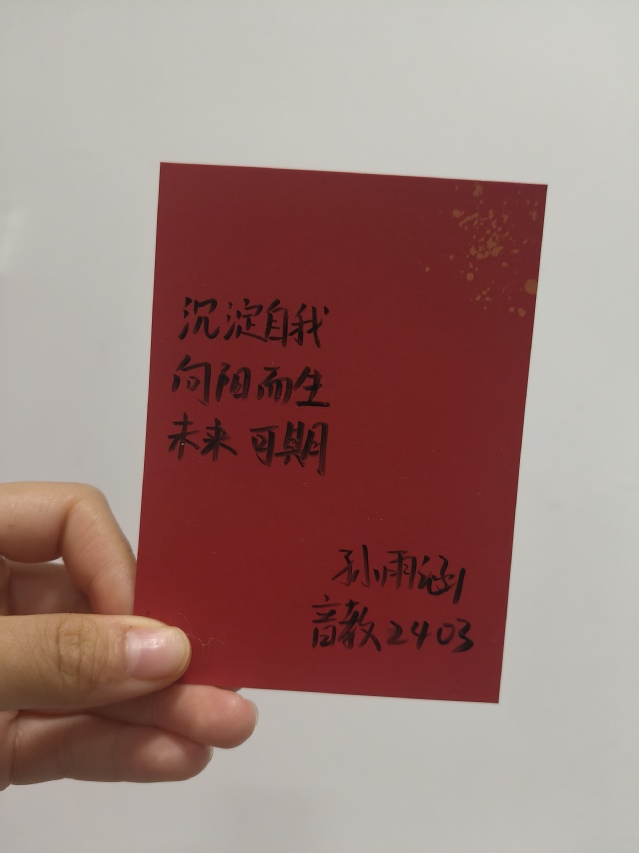 沉淀自我
向阳而生
未来可期
孙雨涵
音教2403